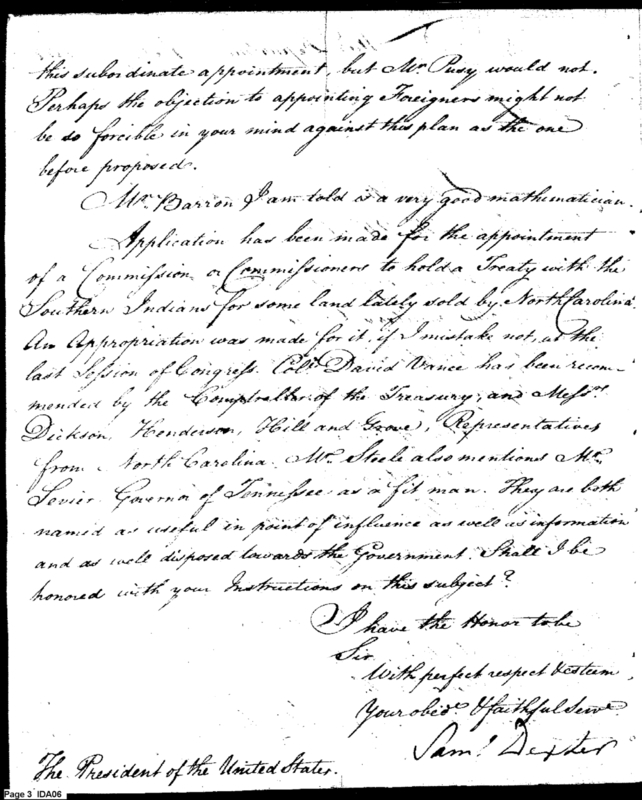 this subordinate appointment, but Mr. Pusy would not.
Perhaps the objection to appointing Foreigners might not
be so forcible in your mind against this plan as the one
before proposed.
Mr. Barron I am told is a very good mathematician.
Application has been made for the appointment
of a Commission or Commissioners to hold a Treaty with the
Southern Indians for some land lately sold by North Carolina.
An Appropriation was made for it, if I mistake not, at the
last Session of Congress. Colo. David Vance has been recom-
mended by the Comptroller of the Treasury, and Messrs.
Dickson, Henderson, Hill and Grove, Representatives
from North Carolina. Mr. Steele also mentions Mr.
Sevier Governor of Tennessee as a fit man. They are both
named as useful in point of influence as well as information
and as well disposed towards the Government. Shall I be
honored with your Instructions on this subject?
I have the Honor to be
Sir
With perfect respect & esteem
Your obedt. & faithful Servt.
Saml. Dexter
The President of the United States.
Page 3 IDA06